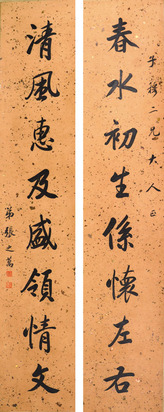 二兄大人正
春水初生係懷左右
清風惠及盛領情文
弟張之萬